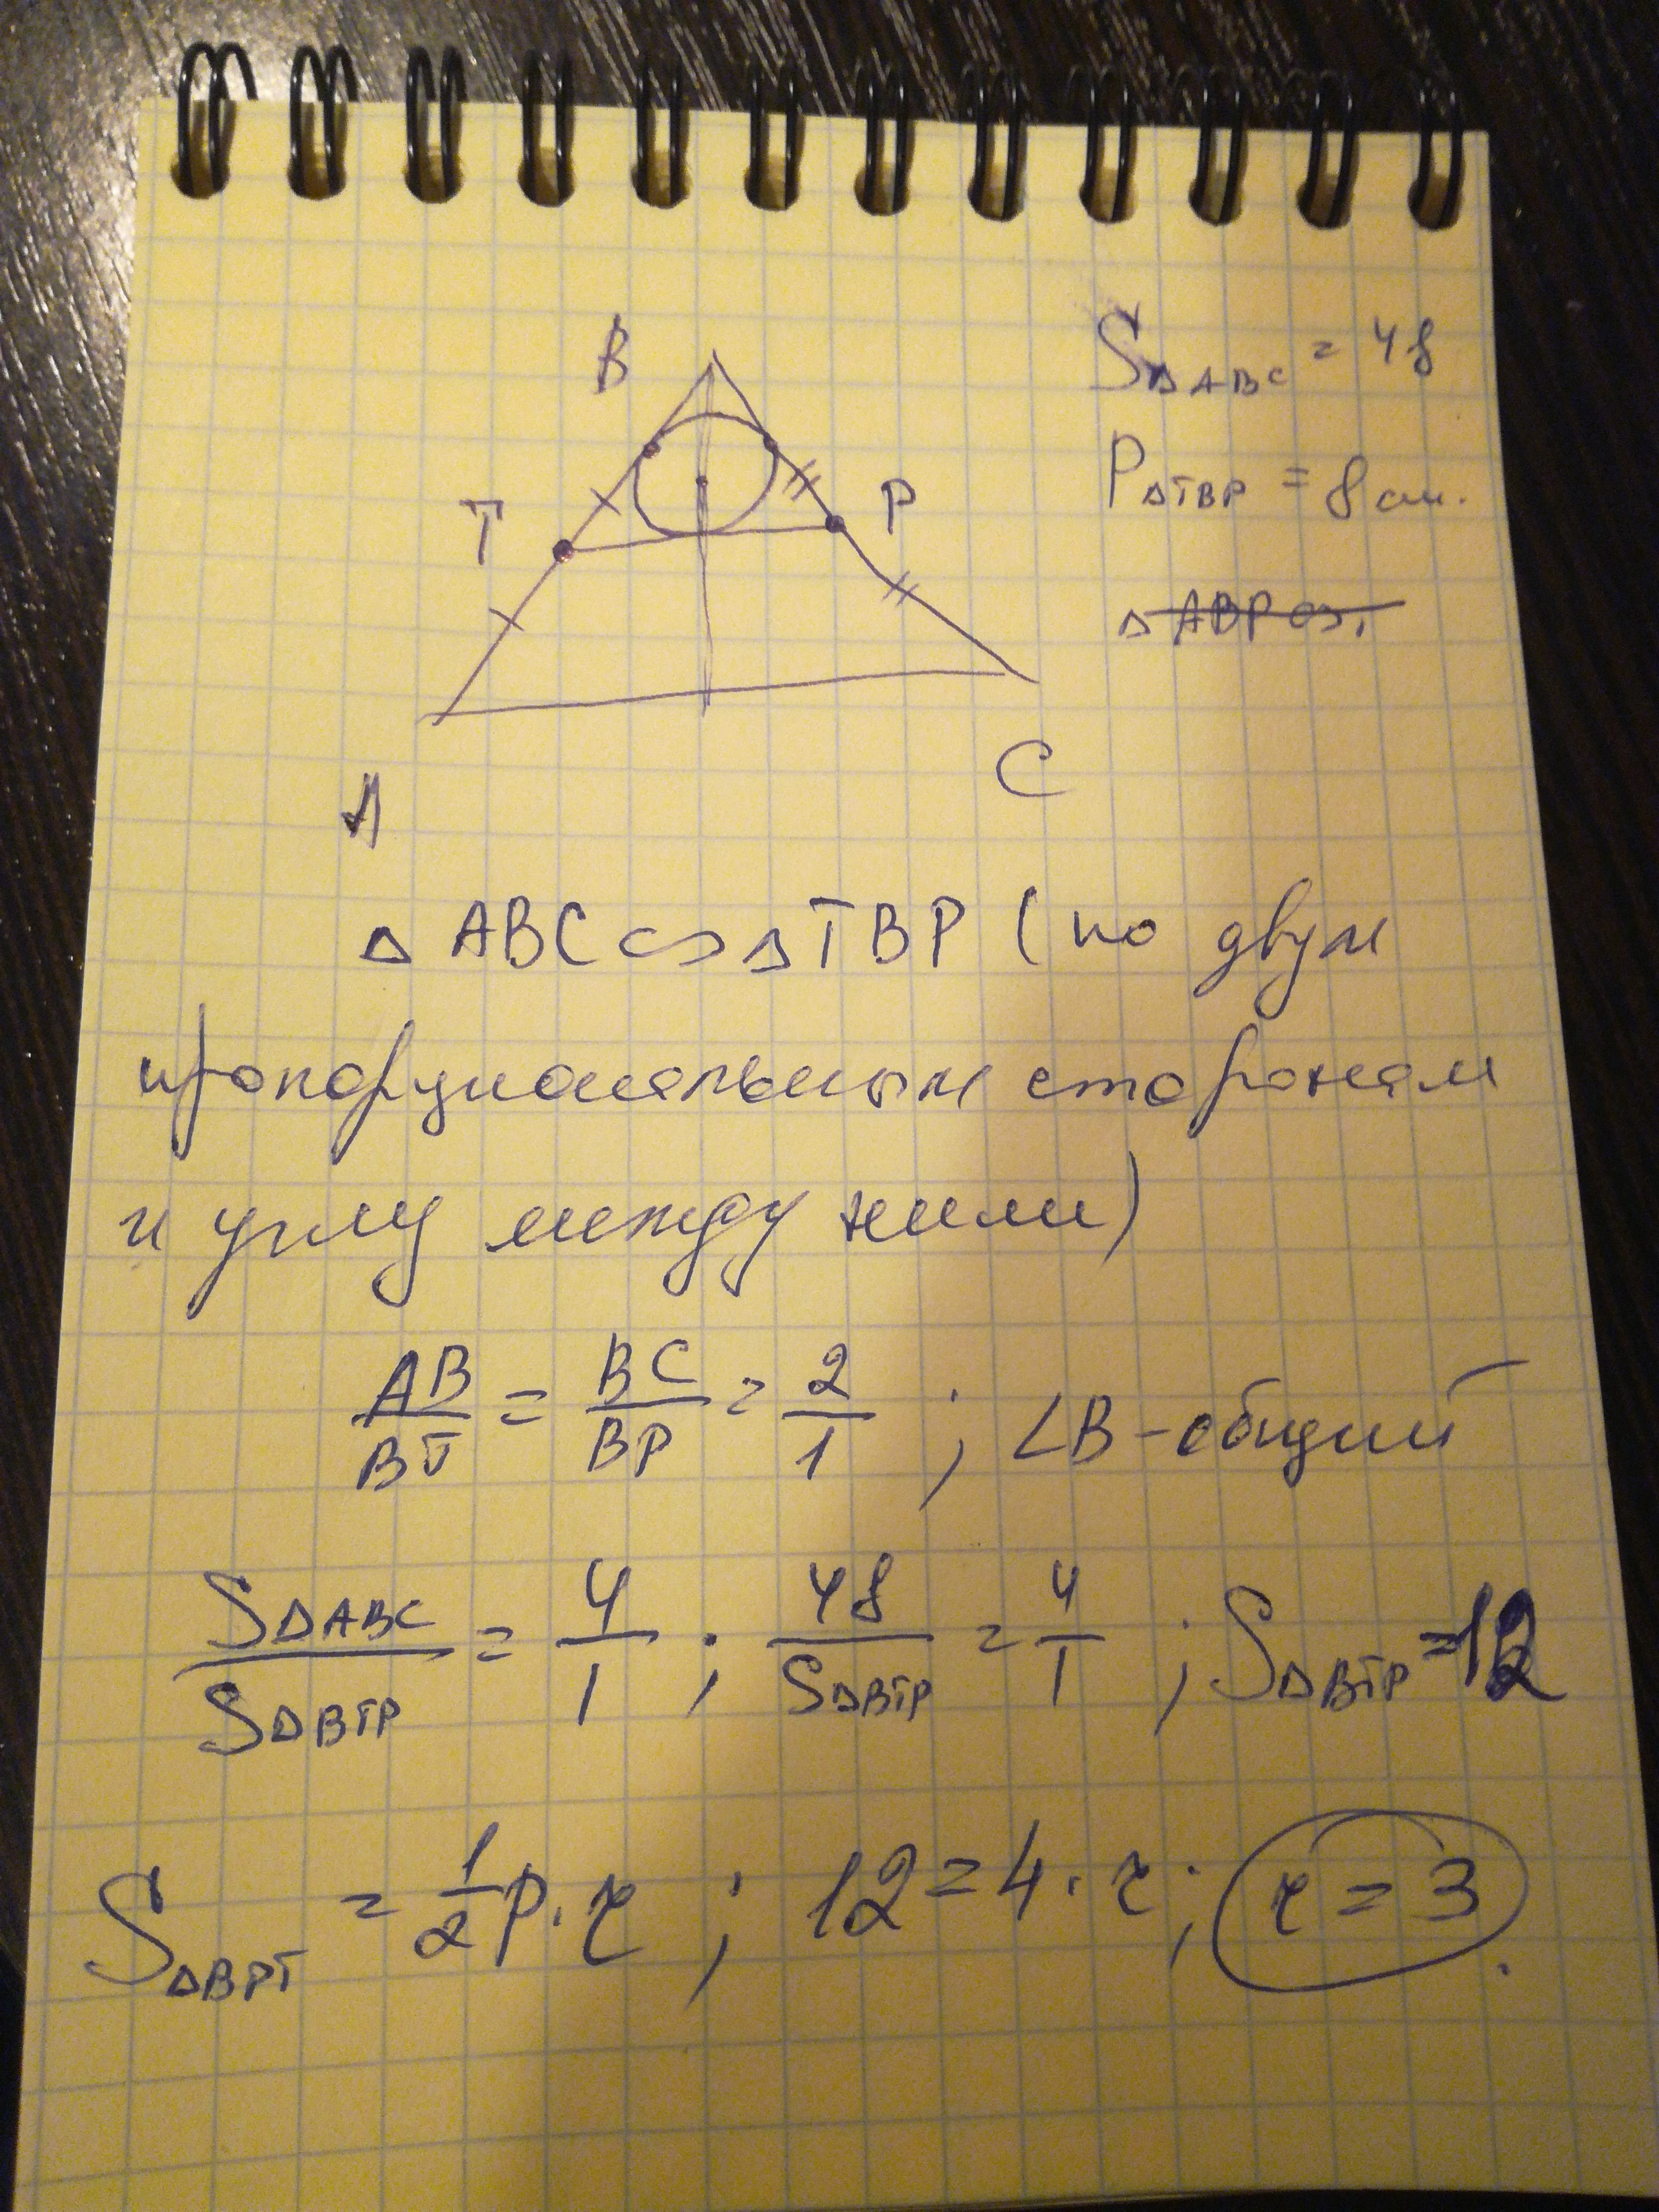 B
T
P
A
C
S△ABC = 48
P△TBP = 8 см.
△ ABP ∽.
△ ABC ∽ △TBP (по двум
пропорциональным сторонам
и углу между ними)
AB/BT = BC/BP = 2/1 ; ∠B - общий
S△ABC/S△BTP = 4/1 ; 48/S△BTP = 4/1 ; S△BTP = 12
S△BPT = 1/2 P · r ; 12 = 4 · r ; r = 3 .